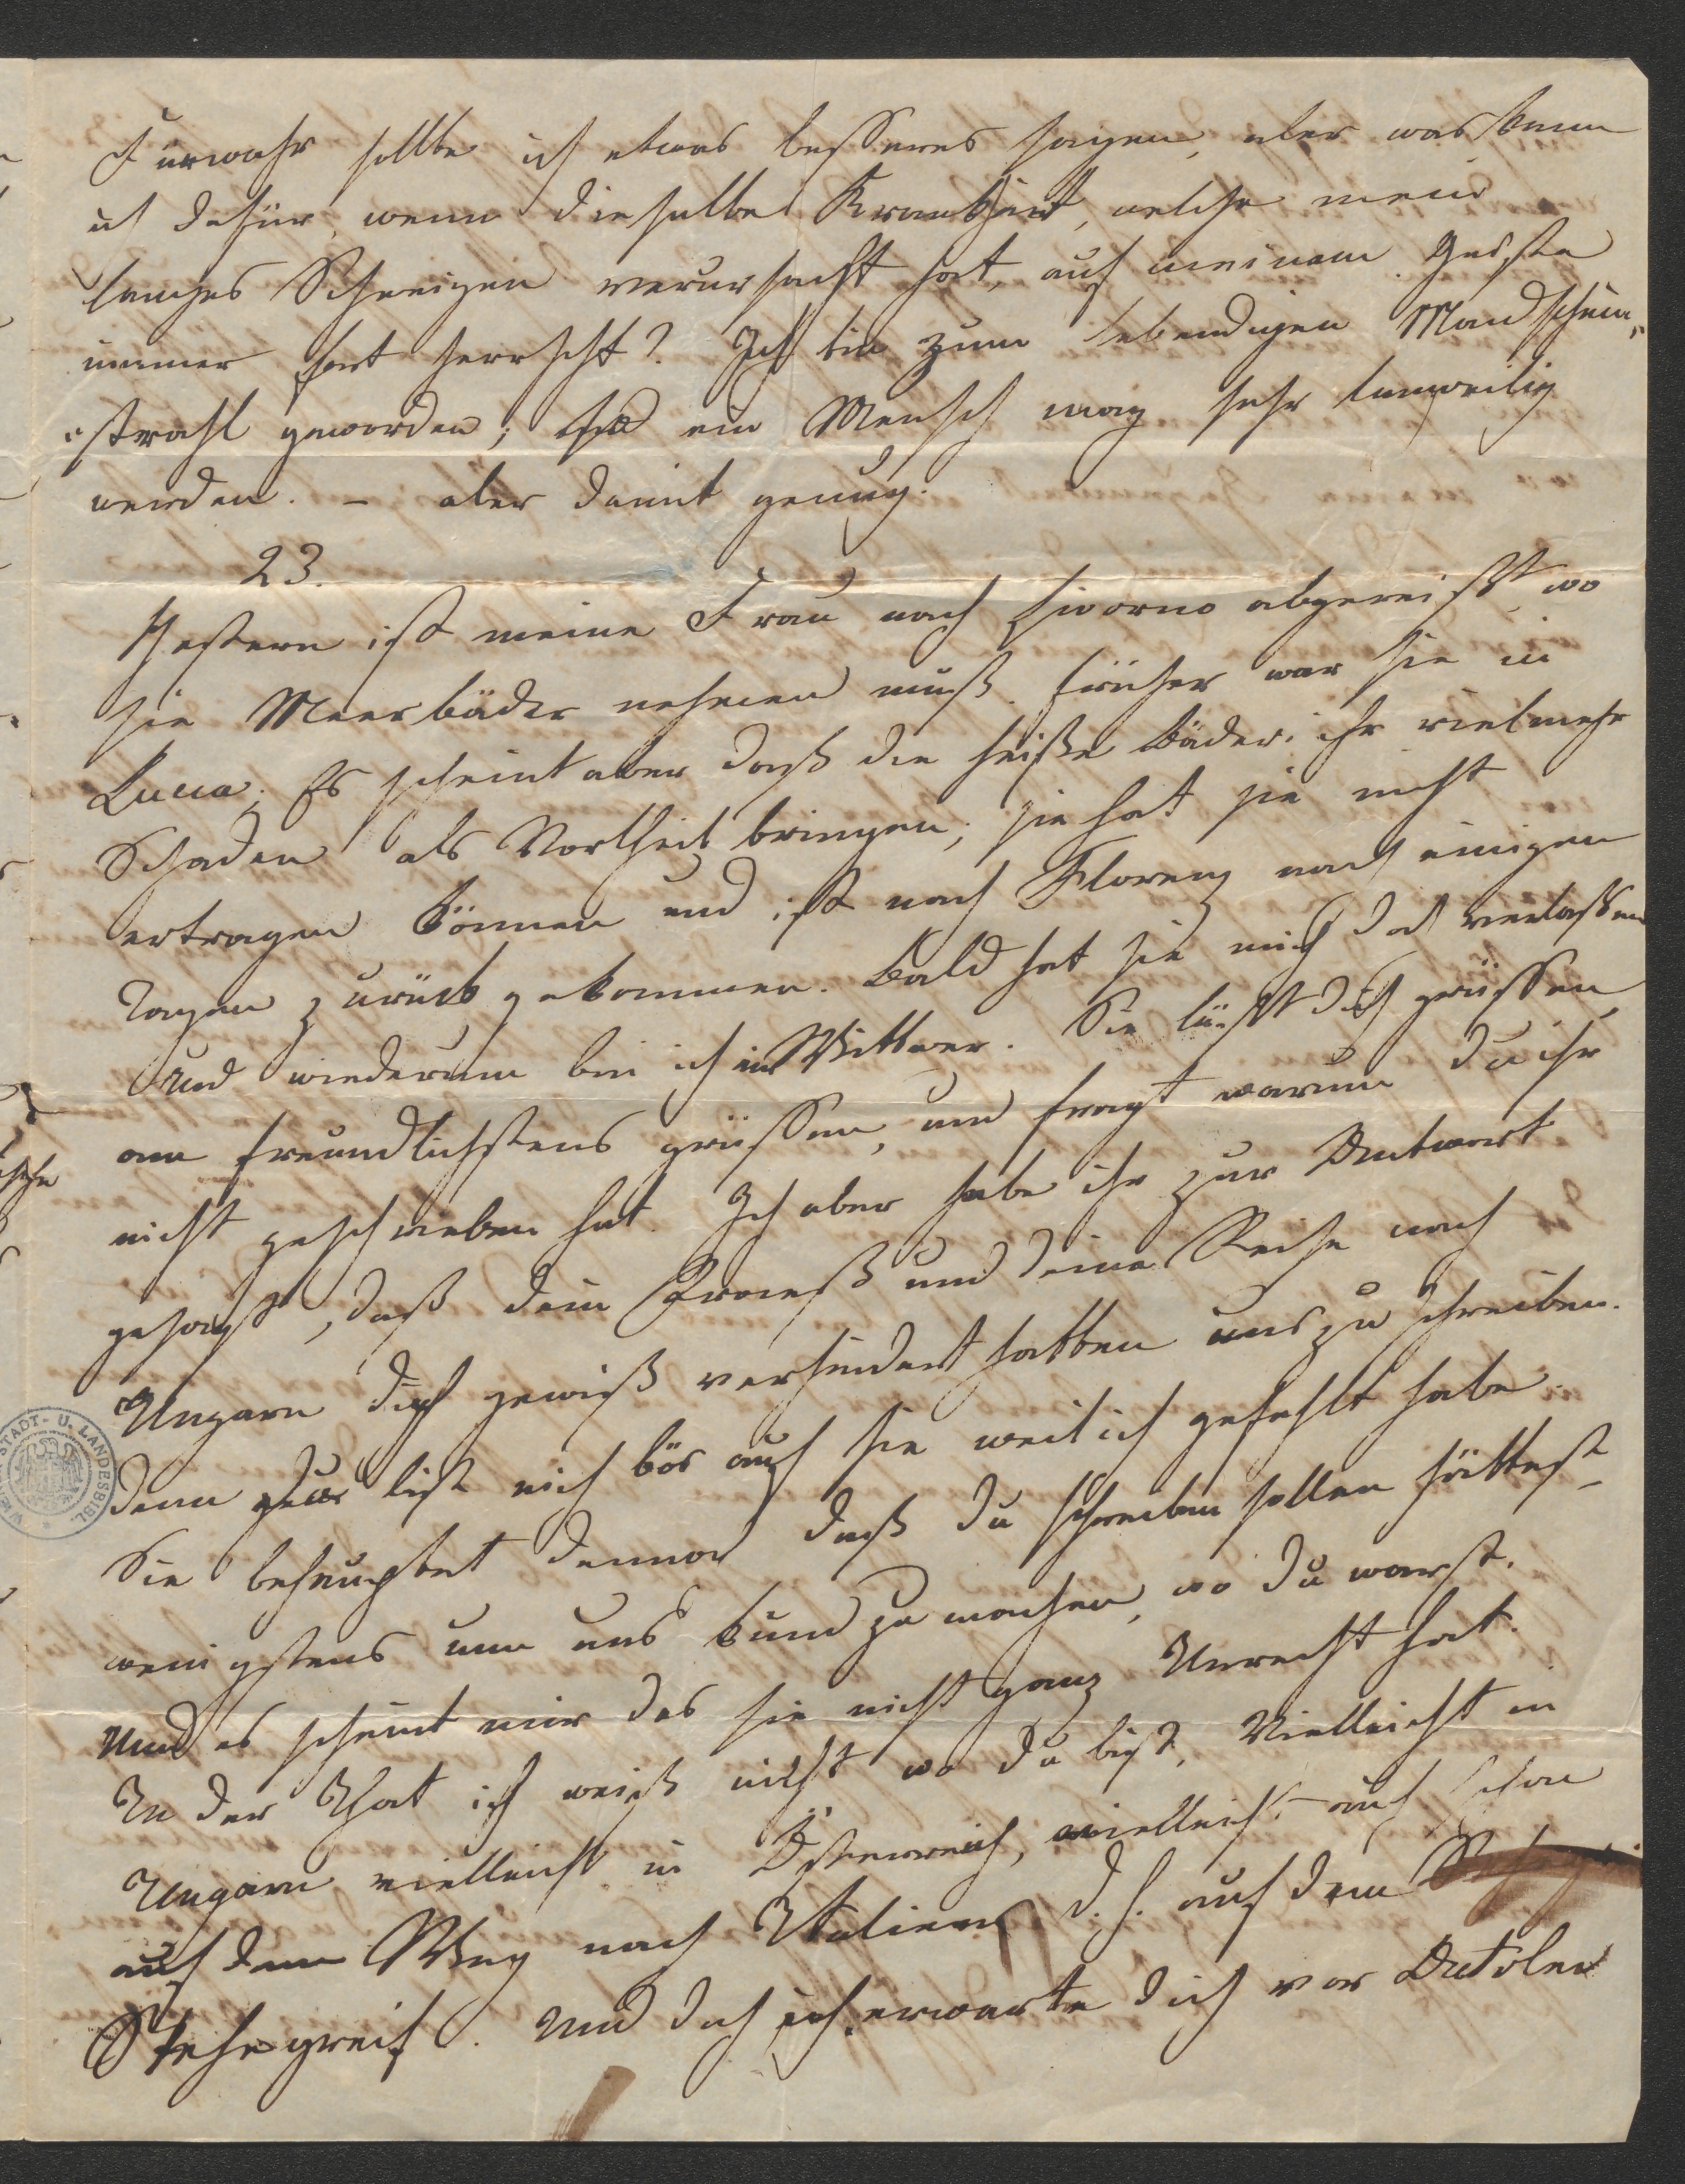 Fürwahr sollte ich etwas besseres sagen, aber was kann
ich dafür, wenn dieselbe Krankheit, welche mein
langes Schweigen verursacht hat, auf meinem Geiste
immer fort herrscht? Ich bin zum lebendigen Mondschein-
strahl geworden; so ein Mensch mag sehr langweilig
werden. – aber damit genug.
23.
Gestern ist meine Frau nach Livorno abgereist, wo
sie Meerbäder nehmen muß. früher war sie in
Lucca; Es scheint aber daß die heiße Bäder ihr vielmehr
Schaden als Vortheil bringen; sie hat sie nicht
ertragen können und ist nach Florenz nach einigen
Tagen zurück gekommen. Bald hat sie mich doch verlassen
und wiederum bin ich ein Wittwer. Sie läßt dich grüssen,
am freundlichstens grüssen, und fragt warum du ihr
nicht geschrieben hat. Ich aber habe ihr zur Antwort
gesagt, daß dein Proceß und deine Reise nach
Ungarn dich gewiß verhindert hatten uns zu schreiben.
denn du bist nich bös auf sie weil ich gefehlt habe.
Sie behauptet dennoch daß du schreiben sollen hättest
wenigstens um uns kund zu machen, wo du warst.
Und es scheint mir das sie nicht ganz Unrecht hat.
In der That ich weiß nicht wo du bist, Vielleicht in
Ungarn vielleicht in Österreich, vielleicht auch schon
auf dem Weg nach Italien, d. h. auf dem
Stehegreif. Und doch ich erwarte dich vor October
WIENER STADT- U. LANDESBIBL.